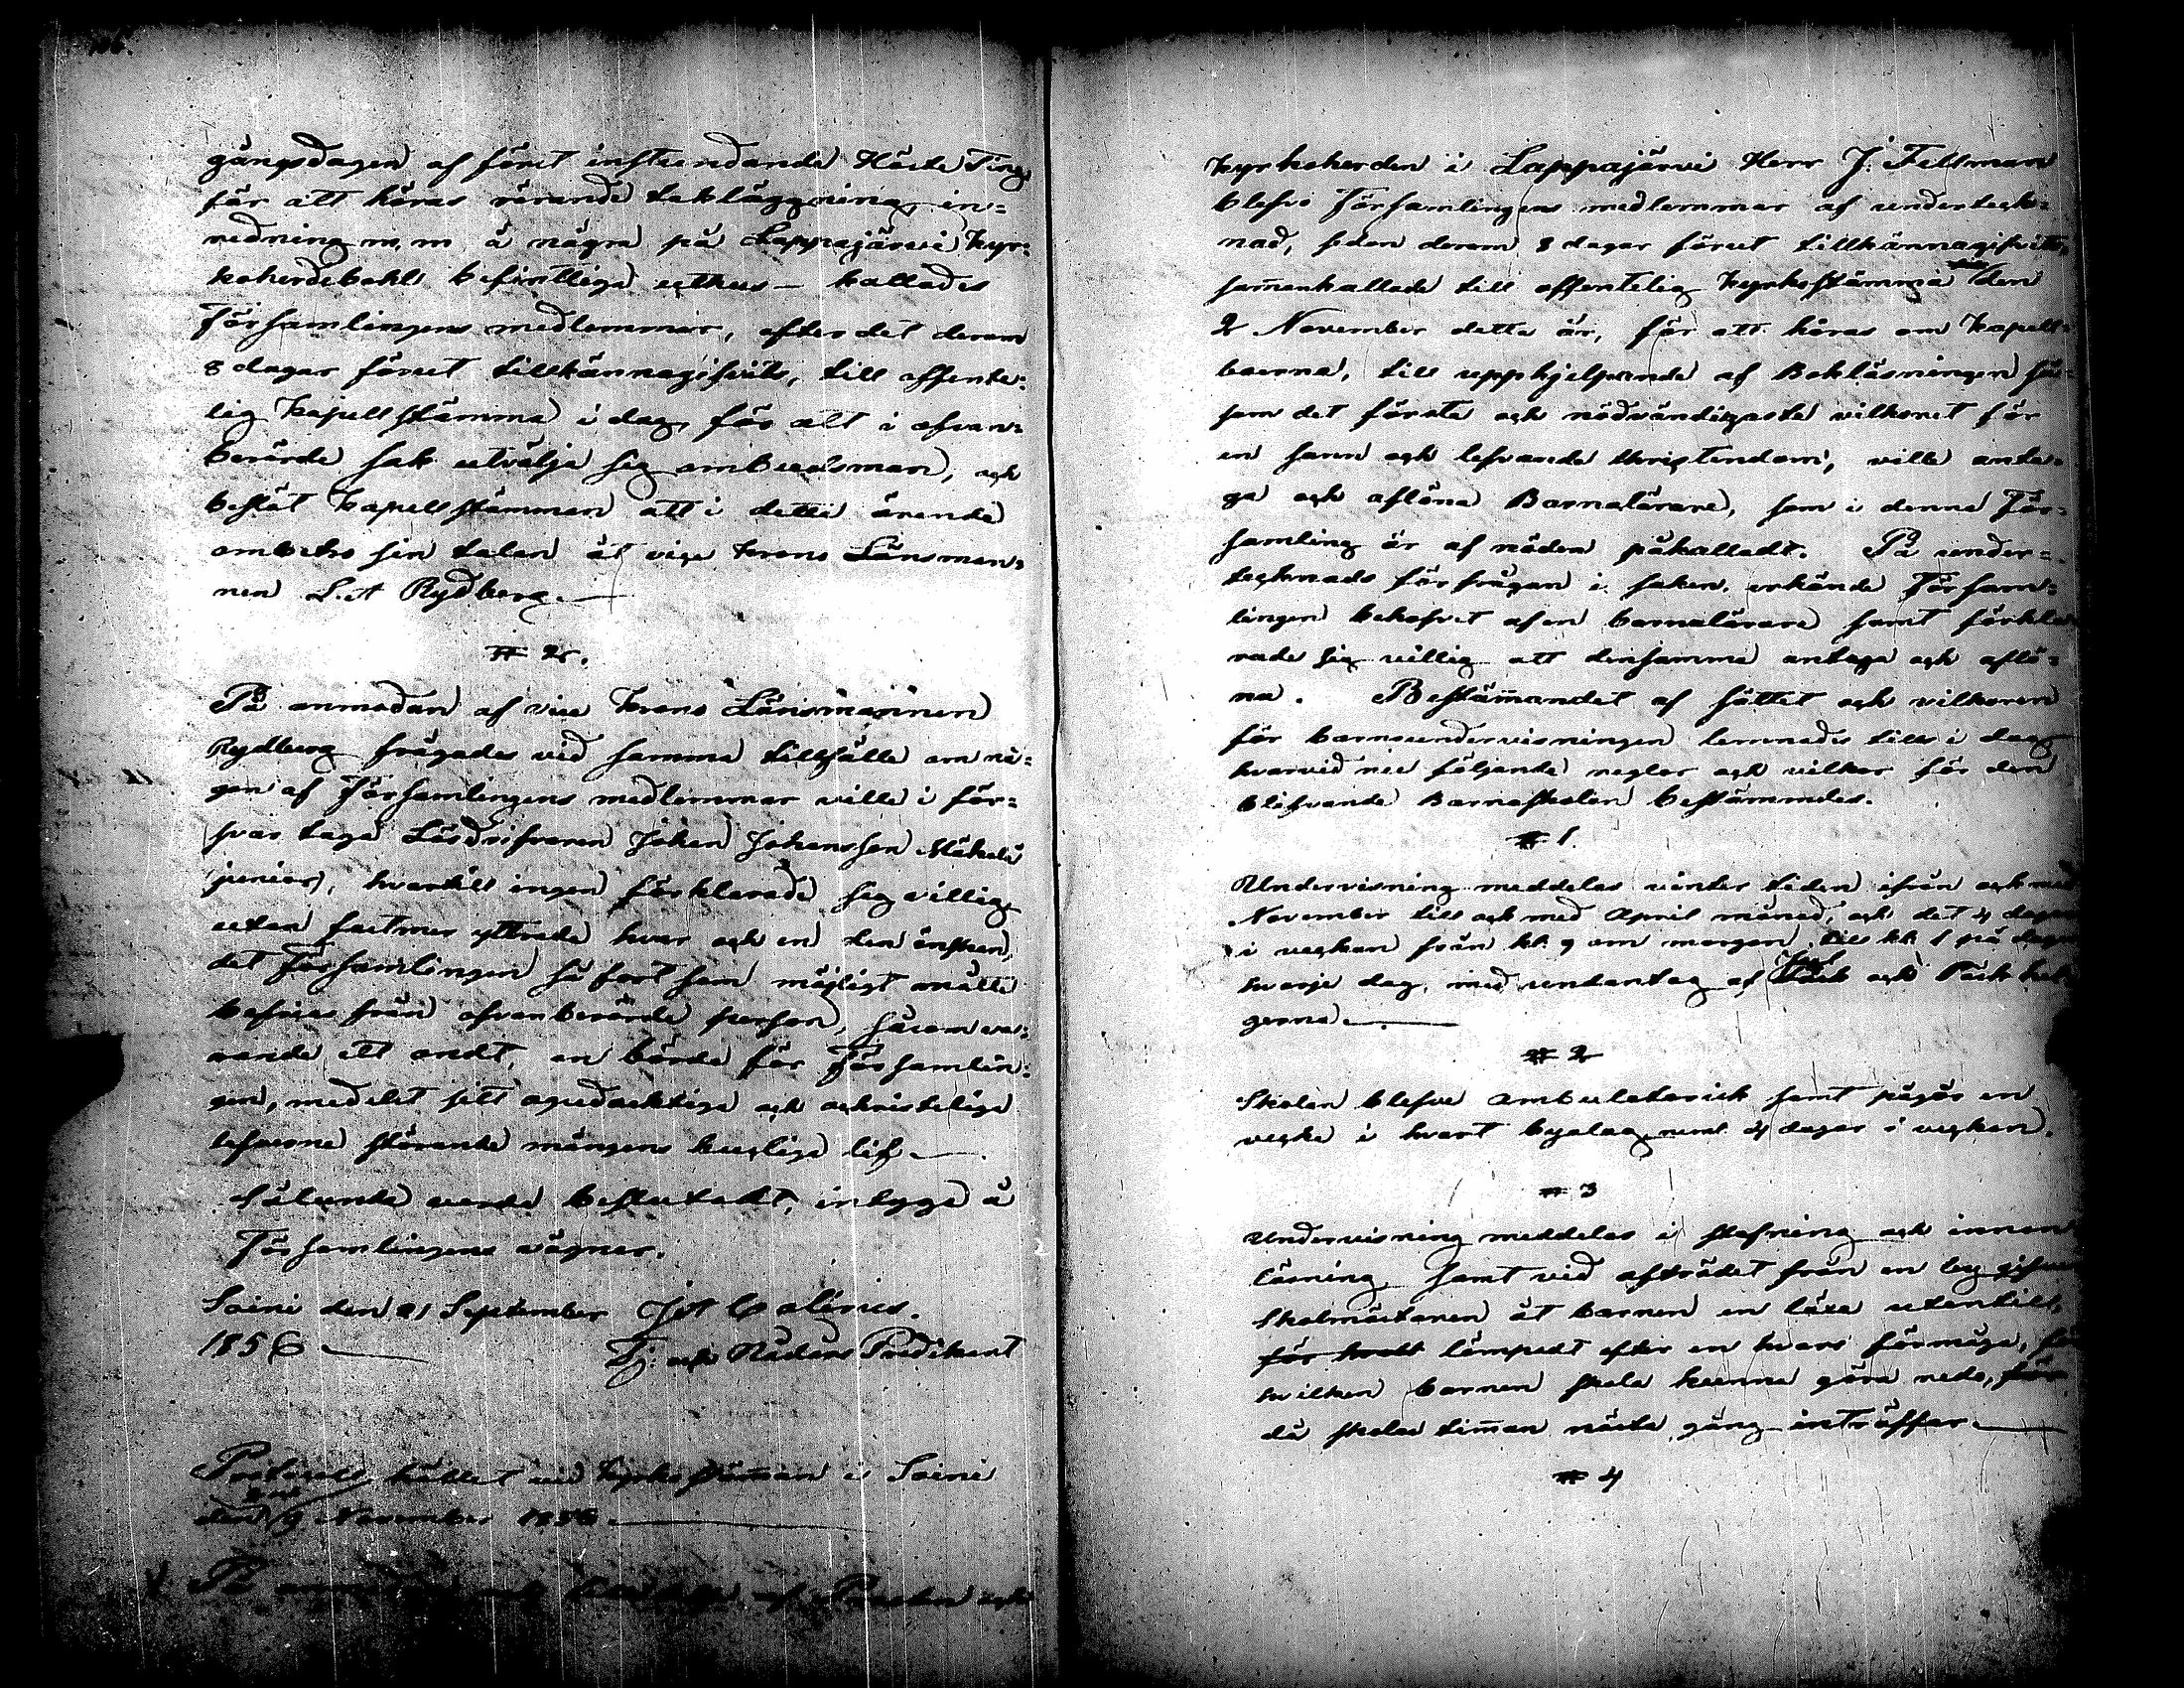 106.
gångsdagen af först instundande Höste Ting
för att höras rörande takläggning, in=
redning m.m å några på Lappajärvi Kyr=
koherdebohl befintliga uthus — kallades
Församlingens medlemmar, efter det derom
8 dagar förut tillkännagifvits, till offente=
lig Kapellstämma i dag, för att i ofvan=
berörde sak utvälja sig ombudsman, och
beslöt Kapellstämman att i detta ärende
ombetro sin talan åt vice Krono Länsman=
nen L.A Rydberg.
# 2.
På anmodan af vice Krono Länsmannen
Rydberg frågades vid samma tillfälle om nå=
gon af Församlingens medlemmar ville i för=
svar taga Lösdrifvaren Johan Johansson Mäkelä
junior, hvartill ingen förklarade sig villig,
utan fastmer yttrade hvar och en den önskan,
det Församlingen så fort som möjligt måtte
befrias från ofvanberörde person, såsom va=
rande ett ondt, en börda för Församlin=
gen, medelst sitt ogudaktiga och ochristeliga
lefverne störande mångens husliga lif.
Sålunda vara beslutadt, intygar å
Församlingens vägnar.
Soini den 21 September Joh Calenius.
1856 Tj. och Nådårs Predikant
Protocoll, hållet vid Kyrkostämman i Soini
den 9 November 1856.
På anmodan och af Pastorn och
Kyrkoherden i Lappajärvi Herr J. Fellman
blefvo Församlingens medlemmar af underteck=
nad, sedan derom 8 dagar förut tillkännagifvits,
sam̄ankallade till offentelig Kyrkostämma den
2 November detta år, för att höras om Kapell=
boerna, till upphjelpande af Bokläsningen så=
som det första och nödvändigaste vilkoret för
en sann och lefvande Christendom, ville anta=
ga och aflöna Barnalärare, som i denna För=
samling är af nöden påkalladt. På under=
tecknads förfrågan i saken, erkände Försam=
lingen behofvet af en barnalärare samt förkla
rade sig villig att densamma antaga och aflö=
na. Bestäm̄andet af sättet och vilkoren
för barnaundervisningen lemnades till i dag
hvarvid nu följande regler och vilkor för den
blifvande Barnaskolan bestämmdes.
# 1.
Undervisning meddelas vinter tiden ifrån och med
November till och med April månad, och det 4 dagar
i veckan från kl. 9 om morgon till kl. 1 på dagen
hvarje dag, med undantag af Jul och Påsk hel
gerna.
# 2
Skolan blefve ambulatorisk samt pågår en
vecka i hvart byalag, neml. 4 dagar i veckan.
# 3
Undervisning meddelas i stafning och innan
läsning, samt vid afträdet från en by gifver
Skolmästaren åt barnen en läxa utantill,
för hvalt lämpadt efter en hvars förmåga, för
hvilken barnen skola kunna göra reda, för
då skolan tim̄an nästa gång inträffar.
# 4